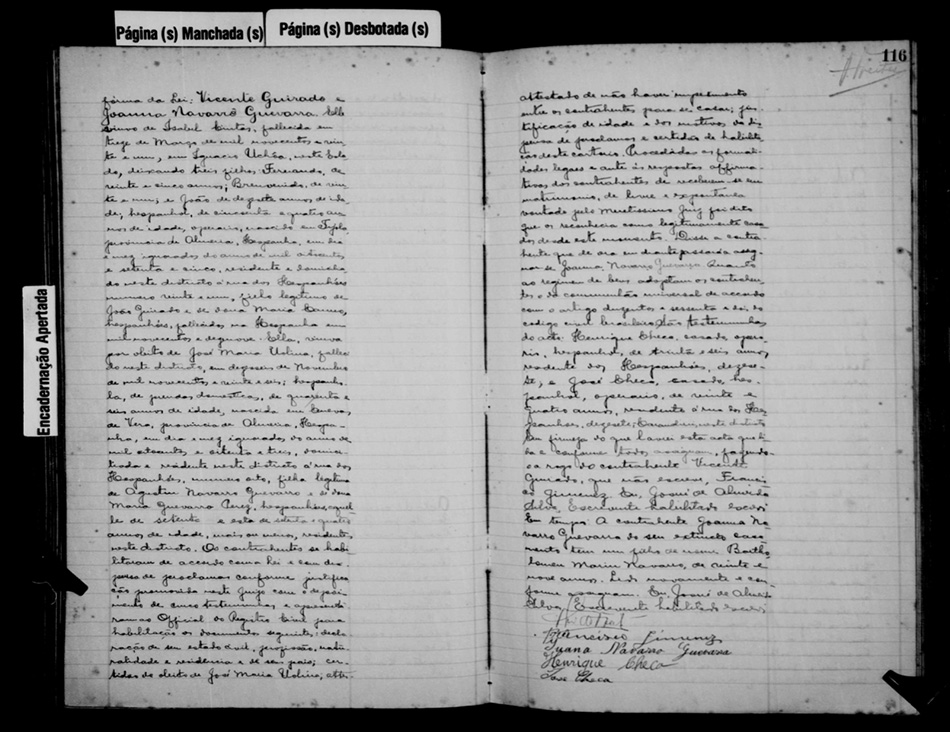 Página (s) Manchada (s)
Página (s) Desbotada (s)
Encadernação Apertada
forma da Lei: Vicente Guirado e
Joanna Navarro Guevarra. Elle
viuvo de Isabel Cintas, fallecida em
treze de Março de mil novecentos e vin-
te e um, em Ignacio Uchôa, neste Esta-
do, deixando tres filhos: Fernando, de
vinte e cinco annos; Bemvenido, de vin-
te e um; e João de dezesete annos de ida-
de; hespanhol, de cincoenta e quatro an-
nos de idade, operario, nascido em
provincia de Almeria, Hespanha, em dia
e mez ignorados do anno de mil oitocentos
e setenta e cinco, residente e domicilia-
do neste districto á rua dos Hespanhóes
numero vinte e um, filho legitimo de
João Guirado e de dona Maria
hespanhóes, fallecidos na Hespanha em
mil novecentos e dezenove. Ella, viuva
por obito de José Maria Molina, falleci-
do neste districto, em dezeseis de Novembro
de mil novecentos e vinte e seis; hespanho-
la, de prendas domesticas, de quarenta e
seis annos de idade, nascida em Cuevas
de Vera, provincia de Almeria, Hespa-
nha, em dia e mez ignorados, do anno de
mil oitocentos e oitenta e tres, domici-
liada e residente neste districto á rua dos
Hespanhóes, numero oito, filha legitima
de Agustin Navarro Guevarro e de dona
Maria Guevarra Perez, hespanhóes, aquel-
le de setenta e esta de setenta e quatro
annos de idade, mais ou menos, residentes
neste districto. Os contrahentes se habi-
litaram de accordo com a lei e com dis-
pensa de proclamas conforme justifica-
ção promovida neste Juizo com o depoi-
mento de cinco testemunhas e apresenta-
ram ao Official do Registro Civil para
habilitação os documentos seguintes: decla-
ração de seu estado civil, profissão, natu-
ralidade e residencia e de seus paes; cer-
tidão de obito de José Maria Molina; atte-
116
attestado de não haver impedimento
entre os contrahentes para se casar; jus-
tificação de idade e dos motivos da dis-
pensa de proclamas e certidão de habilita-
ção deste cartorio. Procedidas as formali-
dades legaes e ante as respostas affirma-
tivas dos contrahentes de receberem-se em
matrimonio, de livre e espontanea
vontade pelo meritissimo Juiz foi dito
que os reconhecia como legitimamente casa-
dos desde este momento. Disse a contra-
hente que de ora em diante passará a assig-
nar-se Joanna Navarro Guevarra. Quanto
ao regimen de bens adoptam os contrahen-
tes o da communhão universal de accordo
com o artigo duzentos e sessenta e dois do
codigo civil brasileiro. São testemunhas
do acto: Henrique Checa, casado, opera-
rio, hespanhol, de trinta e seis annos,
residente dos Hespanhóes, dezese-
te; e José Checa, casado, hes-
panhol, operario, de vinte e
quatro annos, residente á rua dos Hes-
panhóes, dezesete; neste districto.
Em firmeza do que lavrei esta acta que li-
da e conforme todos assignam, fazendo-
o a rogo do contrahente Vicente
Guirado, que não escreve, Francis-
co Gimenez. Eu, Josué de Almeida
Silva, Escrevente habilitado, escrevi.
Em tempo: A contrahente Joanna Na-
varro Guevarra do seu extincto casa-
mento tem um filho de nome Bartho-
lomeu Marin Navarro, de vinte e
nove annos. Lido novamente e con-
forme assignam. Eu, Josué de Almeida
Silva, Escrevente habilitado, escrevi.
Francisco Jimenez
Juana Navarro Guevara
Henrique Checa
José Checa